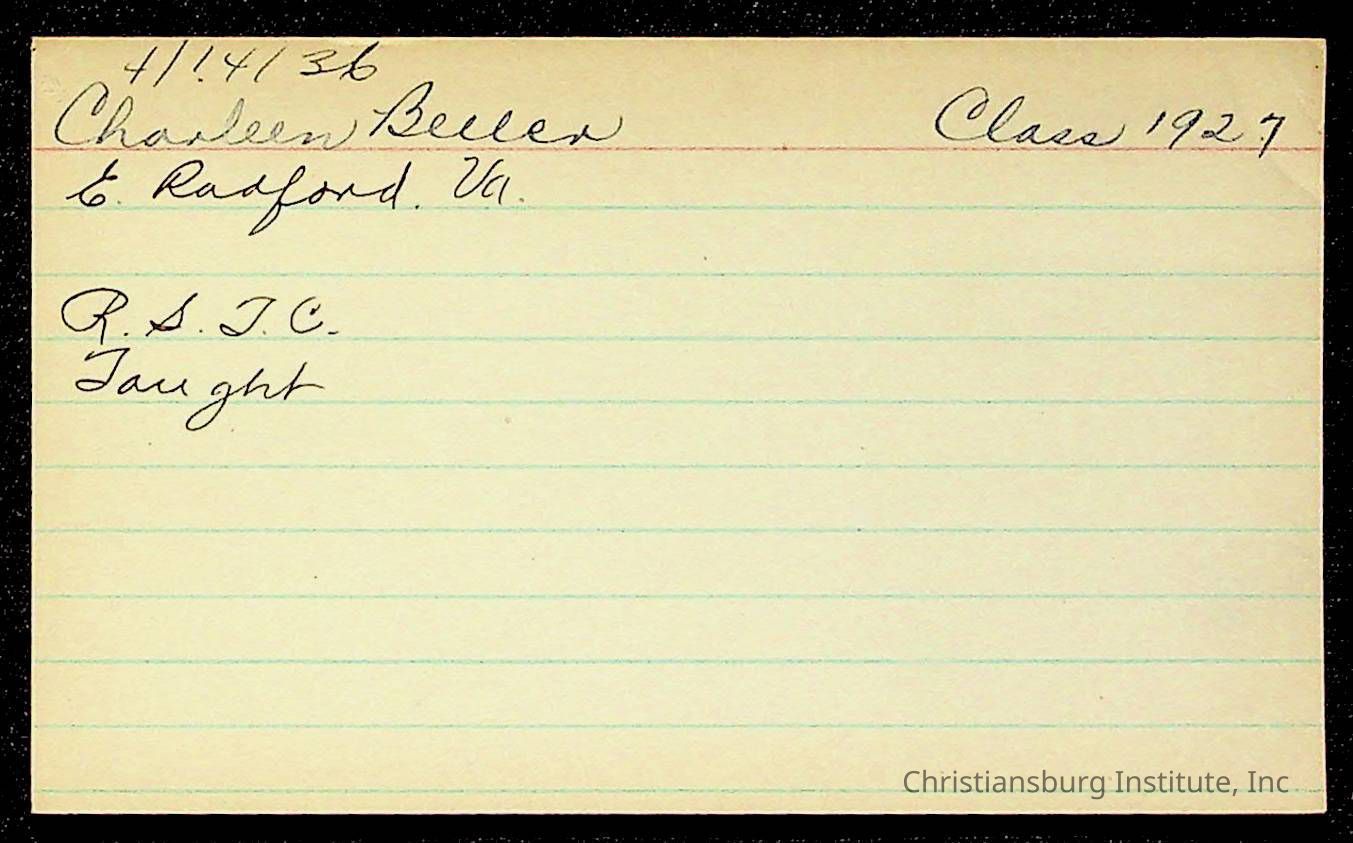 4/14/36
Charleen Beller Class 1927
E. Radford. Va.
R. S. T. C.
Taught
Christiansburg Institute, Inc